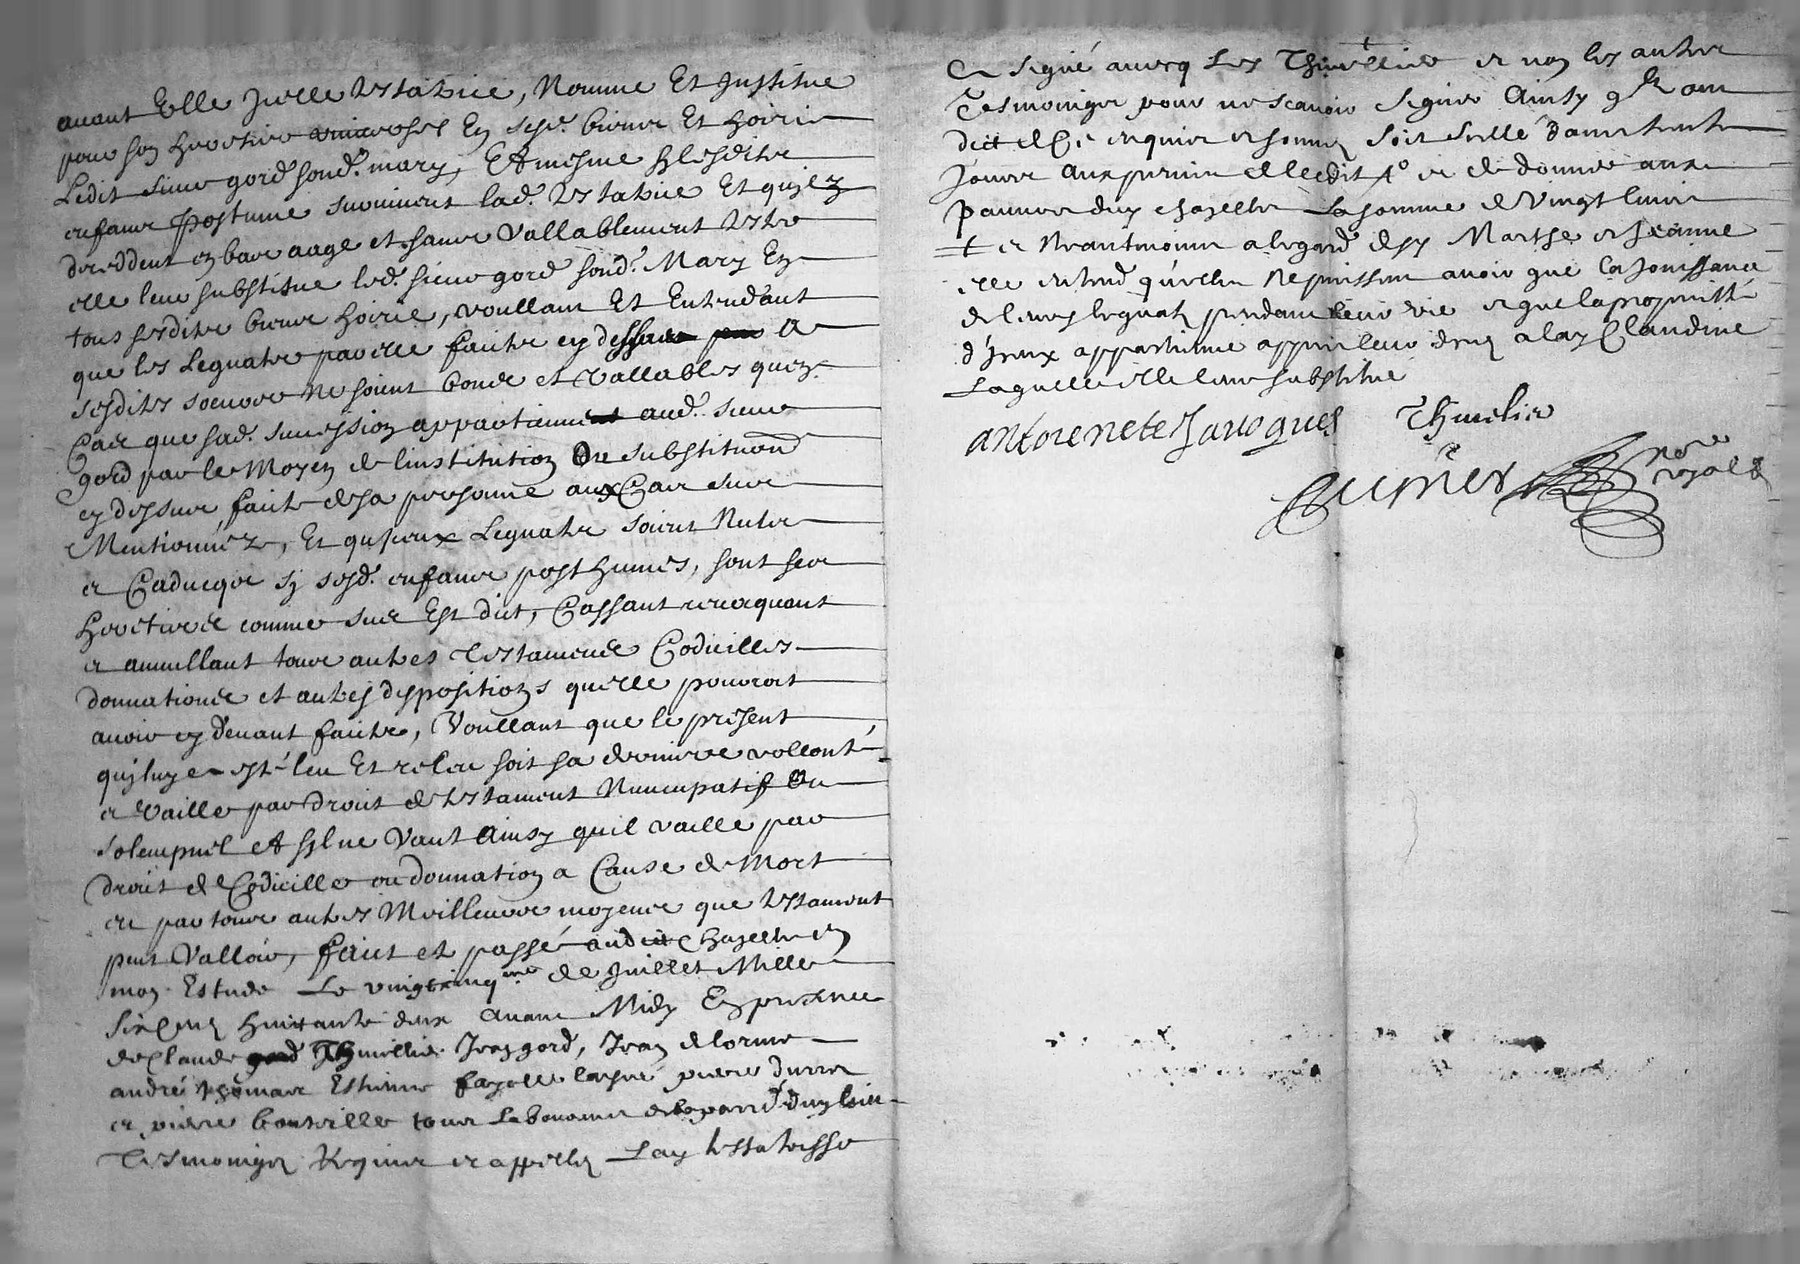 avant Elle Jcelle testatrice, Nomme Et Institue
pour son heretier universel En sesd. biens Et hoirie
Ledit sieur gord sond. mary, Et mesme sy lesditz
enfans Postume survivent lad. testatrice Et quilz
deceddent en bas aage et sans Vallablement tester
elle leur substitue led. sieur gord sond. Mary En
tous sesditz biens hoirie, voullant Et Entendant
que les Leguatz par elle faictz cy dessus A
sesdites soeurs ne soient bons et Vallables qu'en
Cas que sad. succession appartienne aud. sieur
gord par le Moyen de linstitution Ou substitution
cy dessus faicte de sa personne aux Cas sus
Mentionnéz, Et qu'jceux Leguatz soient Nulz
et Caducqs sy sesd. enfans posthumes, sont ses
heretiers comme sus Est dict, Cassant revocquant
et annullant tous autres testamens Codicilles
donnations et autres dispositions qu'elle pouvroit
avoir cy devant faictz, Voullant que le present
quj luy a esté leu Et releu soit sa derniere vollonté
et Vaille par droit de testament Nuncupatif Ou
solempnel et sil ne Vaut Ainsy quil vaille par
droit de Codicille ou donnation a Cause de Mort
et par tous autres Meilleurs moyens que testament
peut Valloir, faict et passé audit Chazelles en
mon Estude Le vingtcinq.me de Juillet Mille
six Cens huittante deux avant Midy En presence
de Claude Thivellier Jean gord, Jean delorme
andré thomas Estienne fayolle laisné pierre
et pierre bouteille tous Laboureurs
Tesmoingz Requis et appellez Lay testatrisse
et signé avecq Les Thivellier et non les autres
Tesmoingz pour ne scavoir signer Ainsy
dict de ce enquis et sommez soit seellé dans trente
jours aux peines de ledit et de donner aux
pauvres duy chazelles La somme de Vingt livres
et Neantmoins a legard desy Marthe et Jeanne
elle entend qu'elles Ne puissent avoir que la Jouissance
de leurs leguatz pendant leur vie et que la propriétté
d'jceux appartienne appres leur decez a lay Claudine
Laquelle elle leur substitue
antoienete Jaucques Thivelier
nore
royal